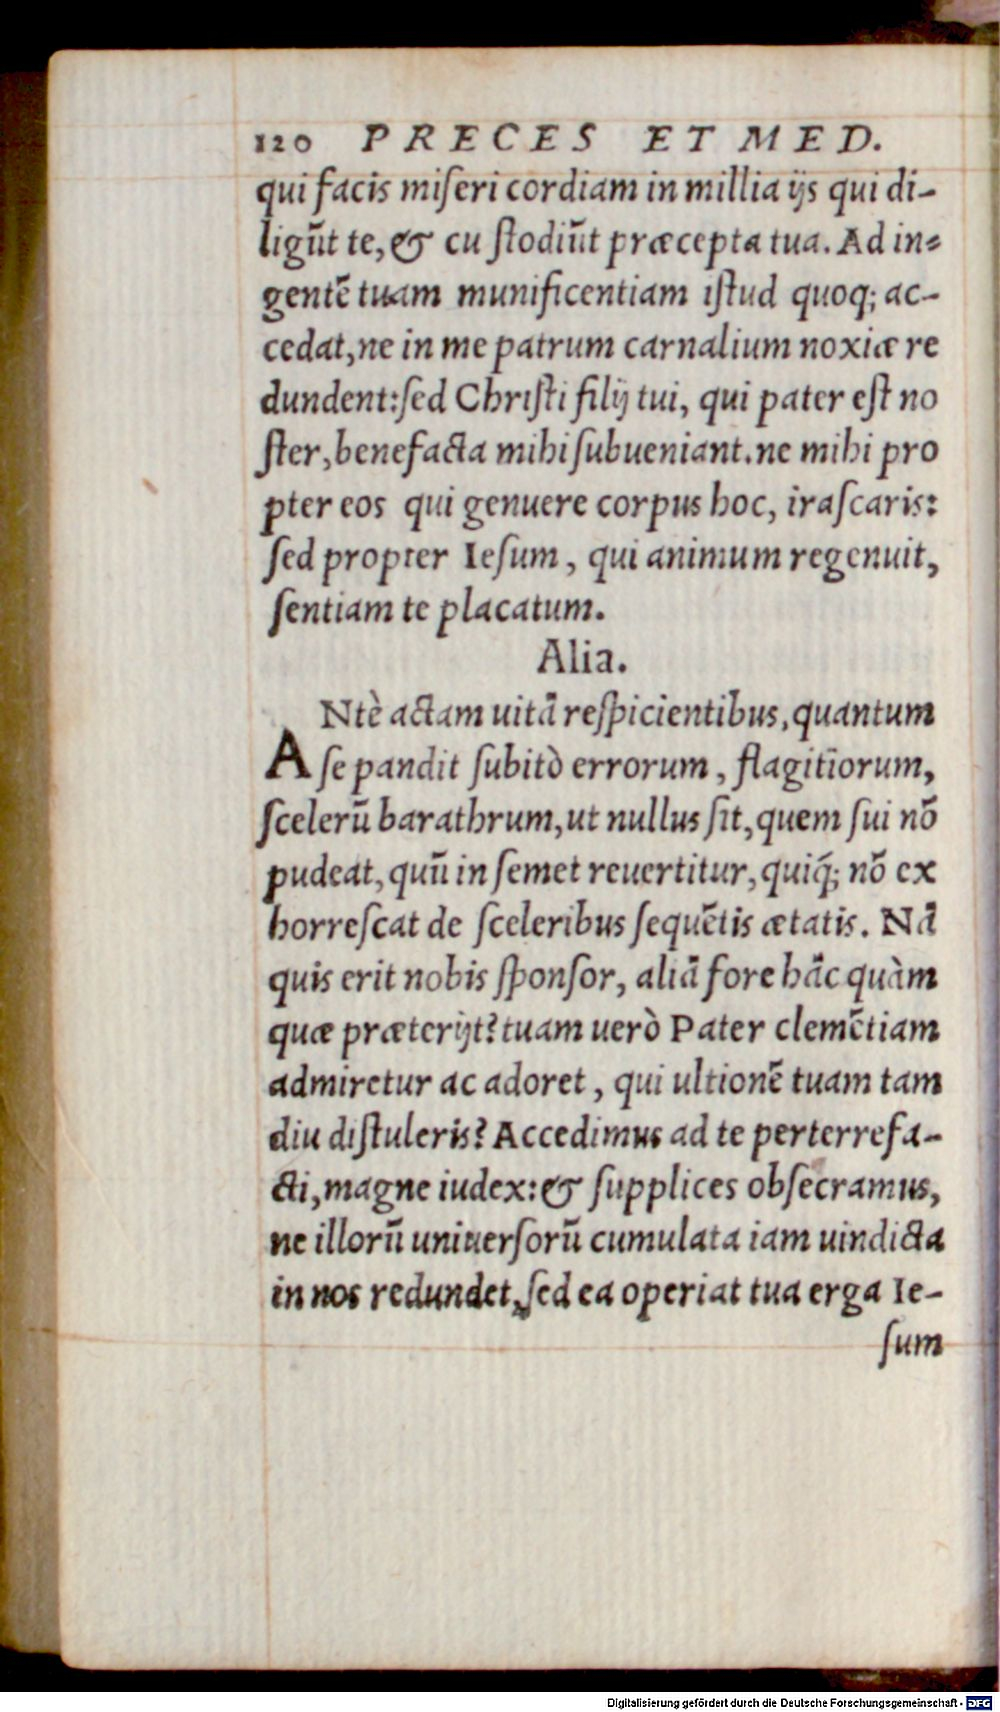 120 PRECES ET MED.
qui facis miſeri cordiam in millia ijs qui di-
ligūt te, & cu ſtodiūt præcepta tua. Ad in-
gentē tuam munificentiam iſtud quoq; ac-
cedat, ne in me patrum carnalium noxiæ re
dundent: ſed Chriſti filij tui, qui pater eſt no
ſter, benefacta mihi ſubueniant. ne mihi pro
pter eos qui genuere corpus hoc, iraſcaris:
ſed propter Ieſum, qui animum regenuit,
ſentiam te placatum.
Alia.
ANtè actam uitā reſpicientibus, quantum
ſe pandit ſubitò errorum, flagitiorum,
ſcelerū barathrum, ut nullus ſit, quem ſui nō
pudeat, quū in ſemet reuertitur, quiq́; nō ex
horreſcat de ſceleribus ſequētis ætatis. Nā
quis erit nobis ſponſor, aliā fore hāc quàm
quæ præterijt? tuam uerò Pater clemētiam
admiretur ac adoret, qui ultionē tuam tam
diu diſtuleris? Accedimus ad te perterrefa-
cti, magne iudex: & ſupplices obſecramus,
ne illorū uniuerſorū cumulata iam uindicta
in nos redundet, ſed ea operiat tua erga Ie-
ſum
Digitalisierung gefördert durch die Deutsche Forschungsgemeinschaft - DFG